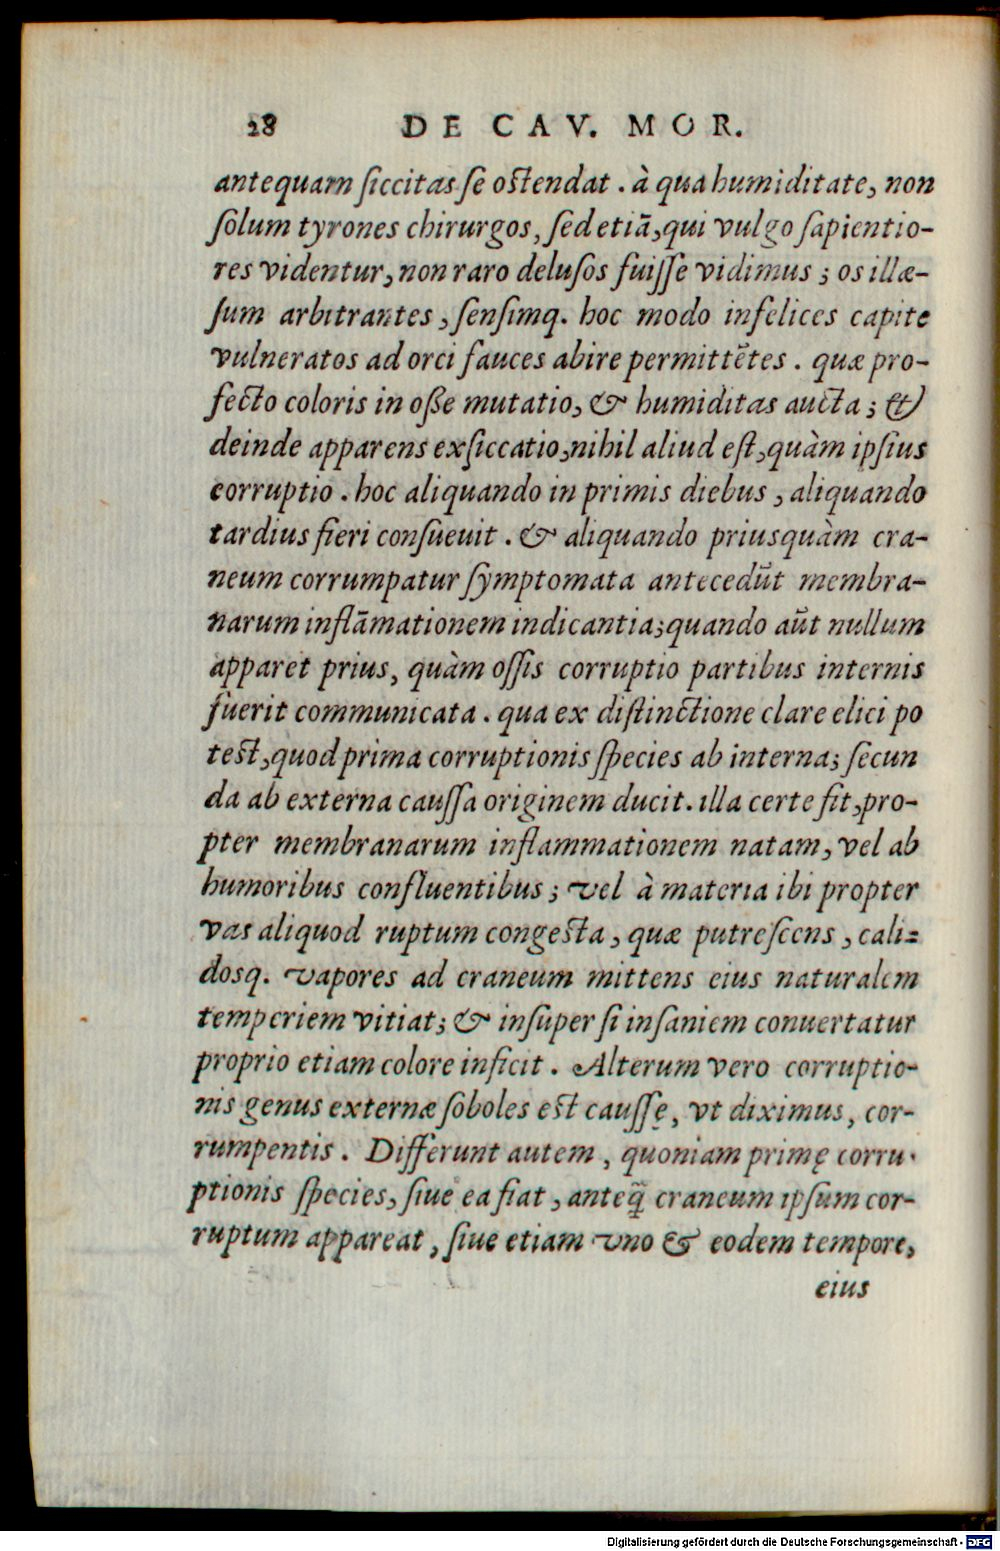 28 DE CAV. MOR.
antequam siccitas se ostendat . à qua humiditate, non
solum tyrones chirurgos, sed etiā, qui vulgo sapientio-
res videntur, non raro delusos fuisse vidimus ; os illæ-
sum arbitrantes , sensimq. hoc modo infelices capite
vulneratos ad orci fauces abire permittētes . quæ pro-
fecto coloris in osse mutatio, & humiditas aucta ; &
deinde apparens exsiccatio, nihil aliud est, quàm ipsius
corruptio . hoc aliquando in primis diebus , aliquando
tardius fieri consueuit . & aliquando priusquàm cra-
neum corrumpatur symptomata antecedūt membra-
narum inflāmationem indicantia; quando aūt nullum
apparet prius, quàm ossis corruptio partibus internis
fuerit communicata . qua ex distinctione clare elici po
test, quod prima corruptionis species ab interna; secun
da ab externa caussa originem ducit. illa certe fit, pro-
pter membranarum inflammationem natam, vel ab
humoribus confluentibus ; vel à materia ibi propter
vas aliquod ruptum congesta , quæ putrescens , cali-
dosq. vapores ad craneum mittens eius naturalem
temperiem vitiat; & insuper si in saniem conuertatur
proprio etiam colore inficit . Alterum vero corruptio-
nis genus externæ soboles est caussę, vt diximus, cor-
rumpentis . Differunt autem , quoniam primę corru-
ptionis species, siue ea fiat , anteq̃ craneum ipsum cor-
ruptum appareat , siue etiam vno & eodem tempore,
eius
Digitalisierung gefördert durch die Deutsche Forschungsgemeinschaft - DFG